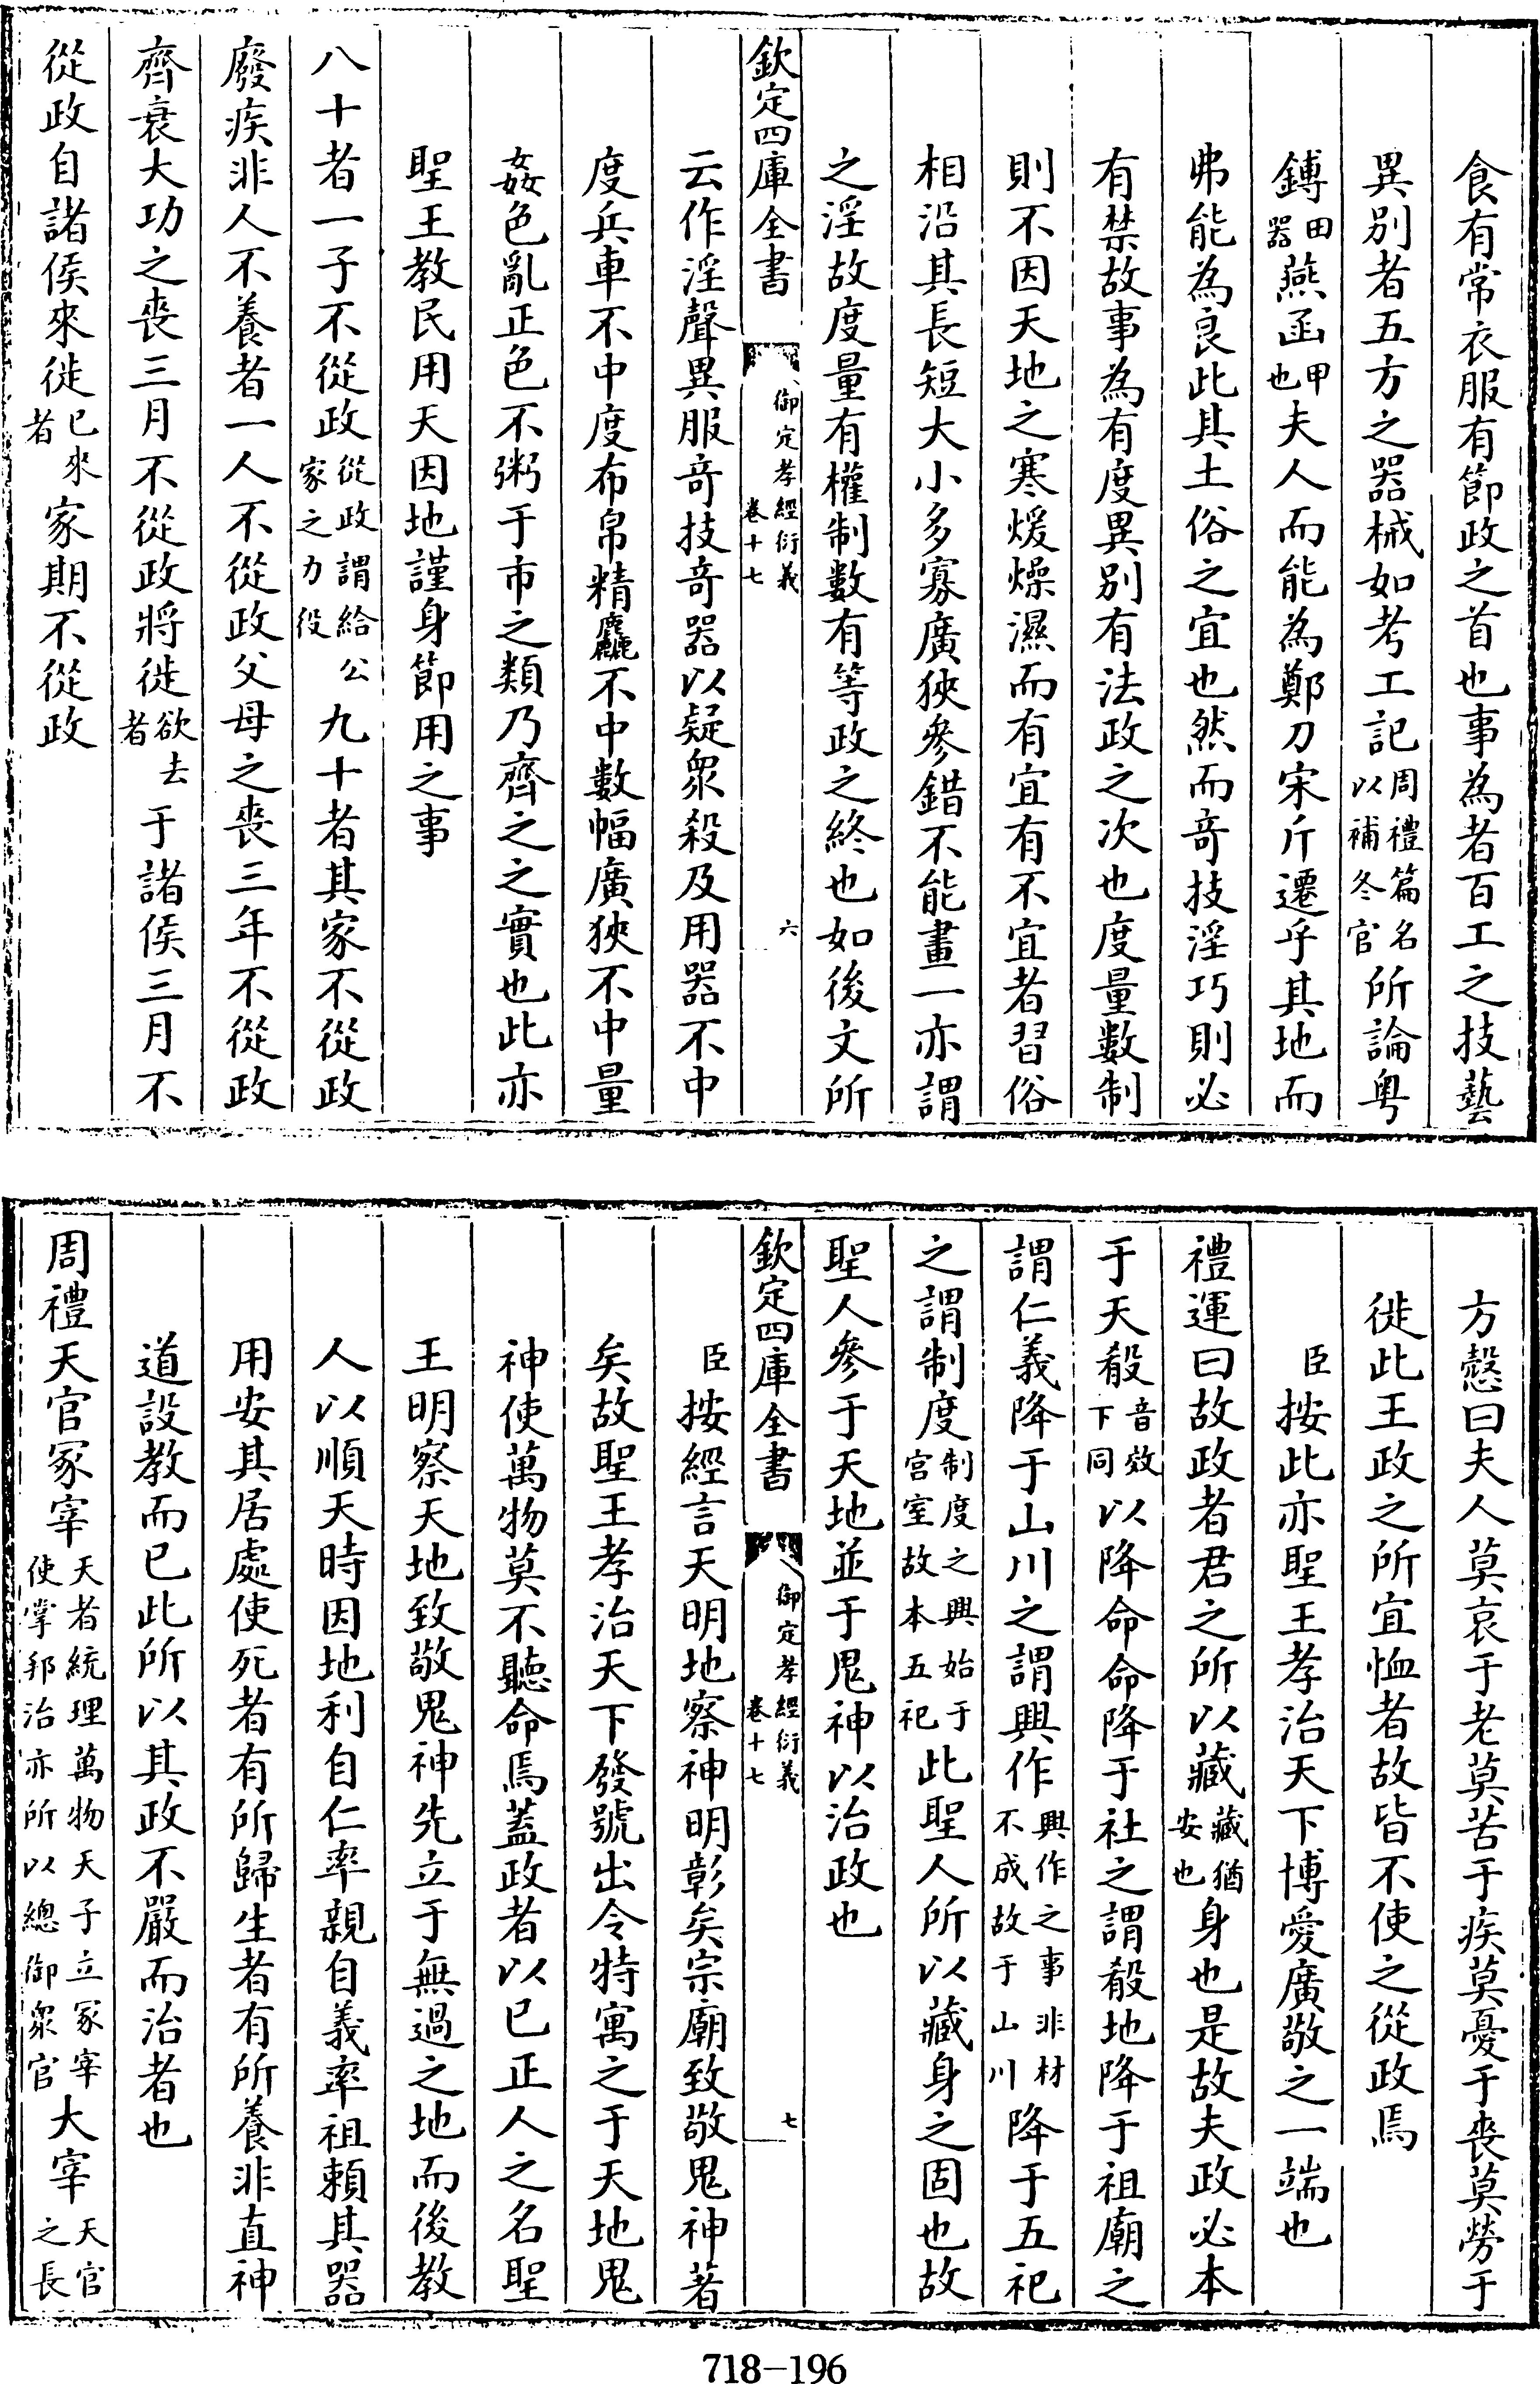 食有常衣服有節政之首也事為者百工之技藝
異別者五方之器械如考工記周禮篇名以補冬官所論粤
鎛田器燕函甲也夫人而能為鄭刀宋斤遷乎其地而
弗能為良此其土俗之宜也然而奇技淫巧則必
有禁故事為有度異別有法政之次也度量數制
則不因天地之寒煖燥濕而有宜有不宜者習俗
相沿其長短大小多寡廣狹參錯不能畫一亦謂
之淫故度量有權制數有等政之終也如後文所
欽定四庫全書 御定孝經衍義卷十七 六
云作淫聲異服奇技奇器以疑衆殺及用器不中
度兵車不中度布帛精麤不中數幅廣狹不中量
姦色亂正色不粥于市之類乃齊之之實也此亦
聖王教民用天因地謹身節用之事
八十者一子不從政從政謂給公家之力役九十者其家不從政
廢疾非人不養者一人不從政父母之喪三年不從政
齊衰大功之喪三月不從政將徙欲去者于諸侯三月不
從政自諸侯來徙已來者家期不從政
方慤曰夫人莫哀于老莫苦于疾莫憂于喪莫勞于
徙此王政之所宜恤者故皆不使之從政焉
臣按此亦聖王孝治天下博愛廣敬之一端也
禮運曰故政者君之所以藏藏猶安也身也是故夫政必本
于天殽音效下同以降命命降于社之謂殽地降于祖廟之
謂仁義降于山川之謂興作興作之事非材不成故于山川降于五祀
之謂制度制度之興始于宮室故本五祀此聖人所以藏身之固也故
聖人參于天地並于鬼神以治政也
欽定四庫全書 御定孝經衍義卷十七 七
臣按經言天明地察神明彰矣宗廟致敬鬼神著
矣故聖王孝治天下發號出令特寓之于天地鬼
神使萬物莫不聽命焉蓋政者以已正人之名聖
王明察天地致敬鬼神先立于無過之地而後教
人以順天時因地利自仁率親自義率祖賴其器
用安其居處使死者有所歸生者有所養非直神
道設教而已此所以其政不嚴而治者也
周禮天官冢宰天者統理萬物天子立冢宰使掌邦治亦所以總御衆官大宰天官之長
718-196